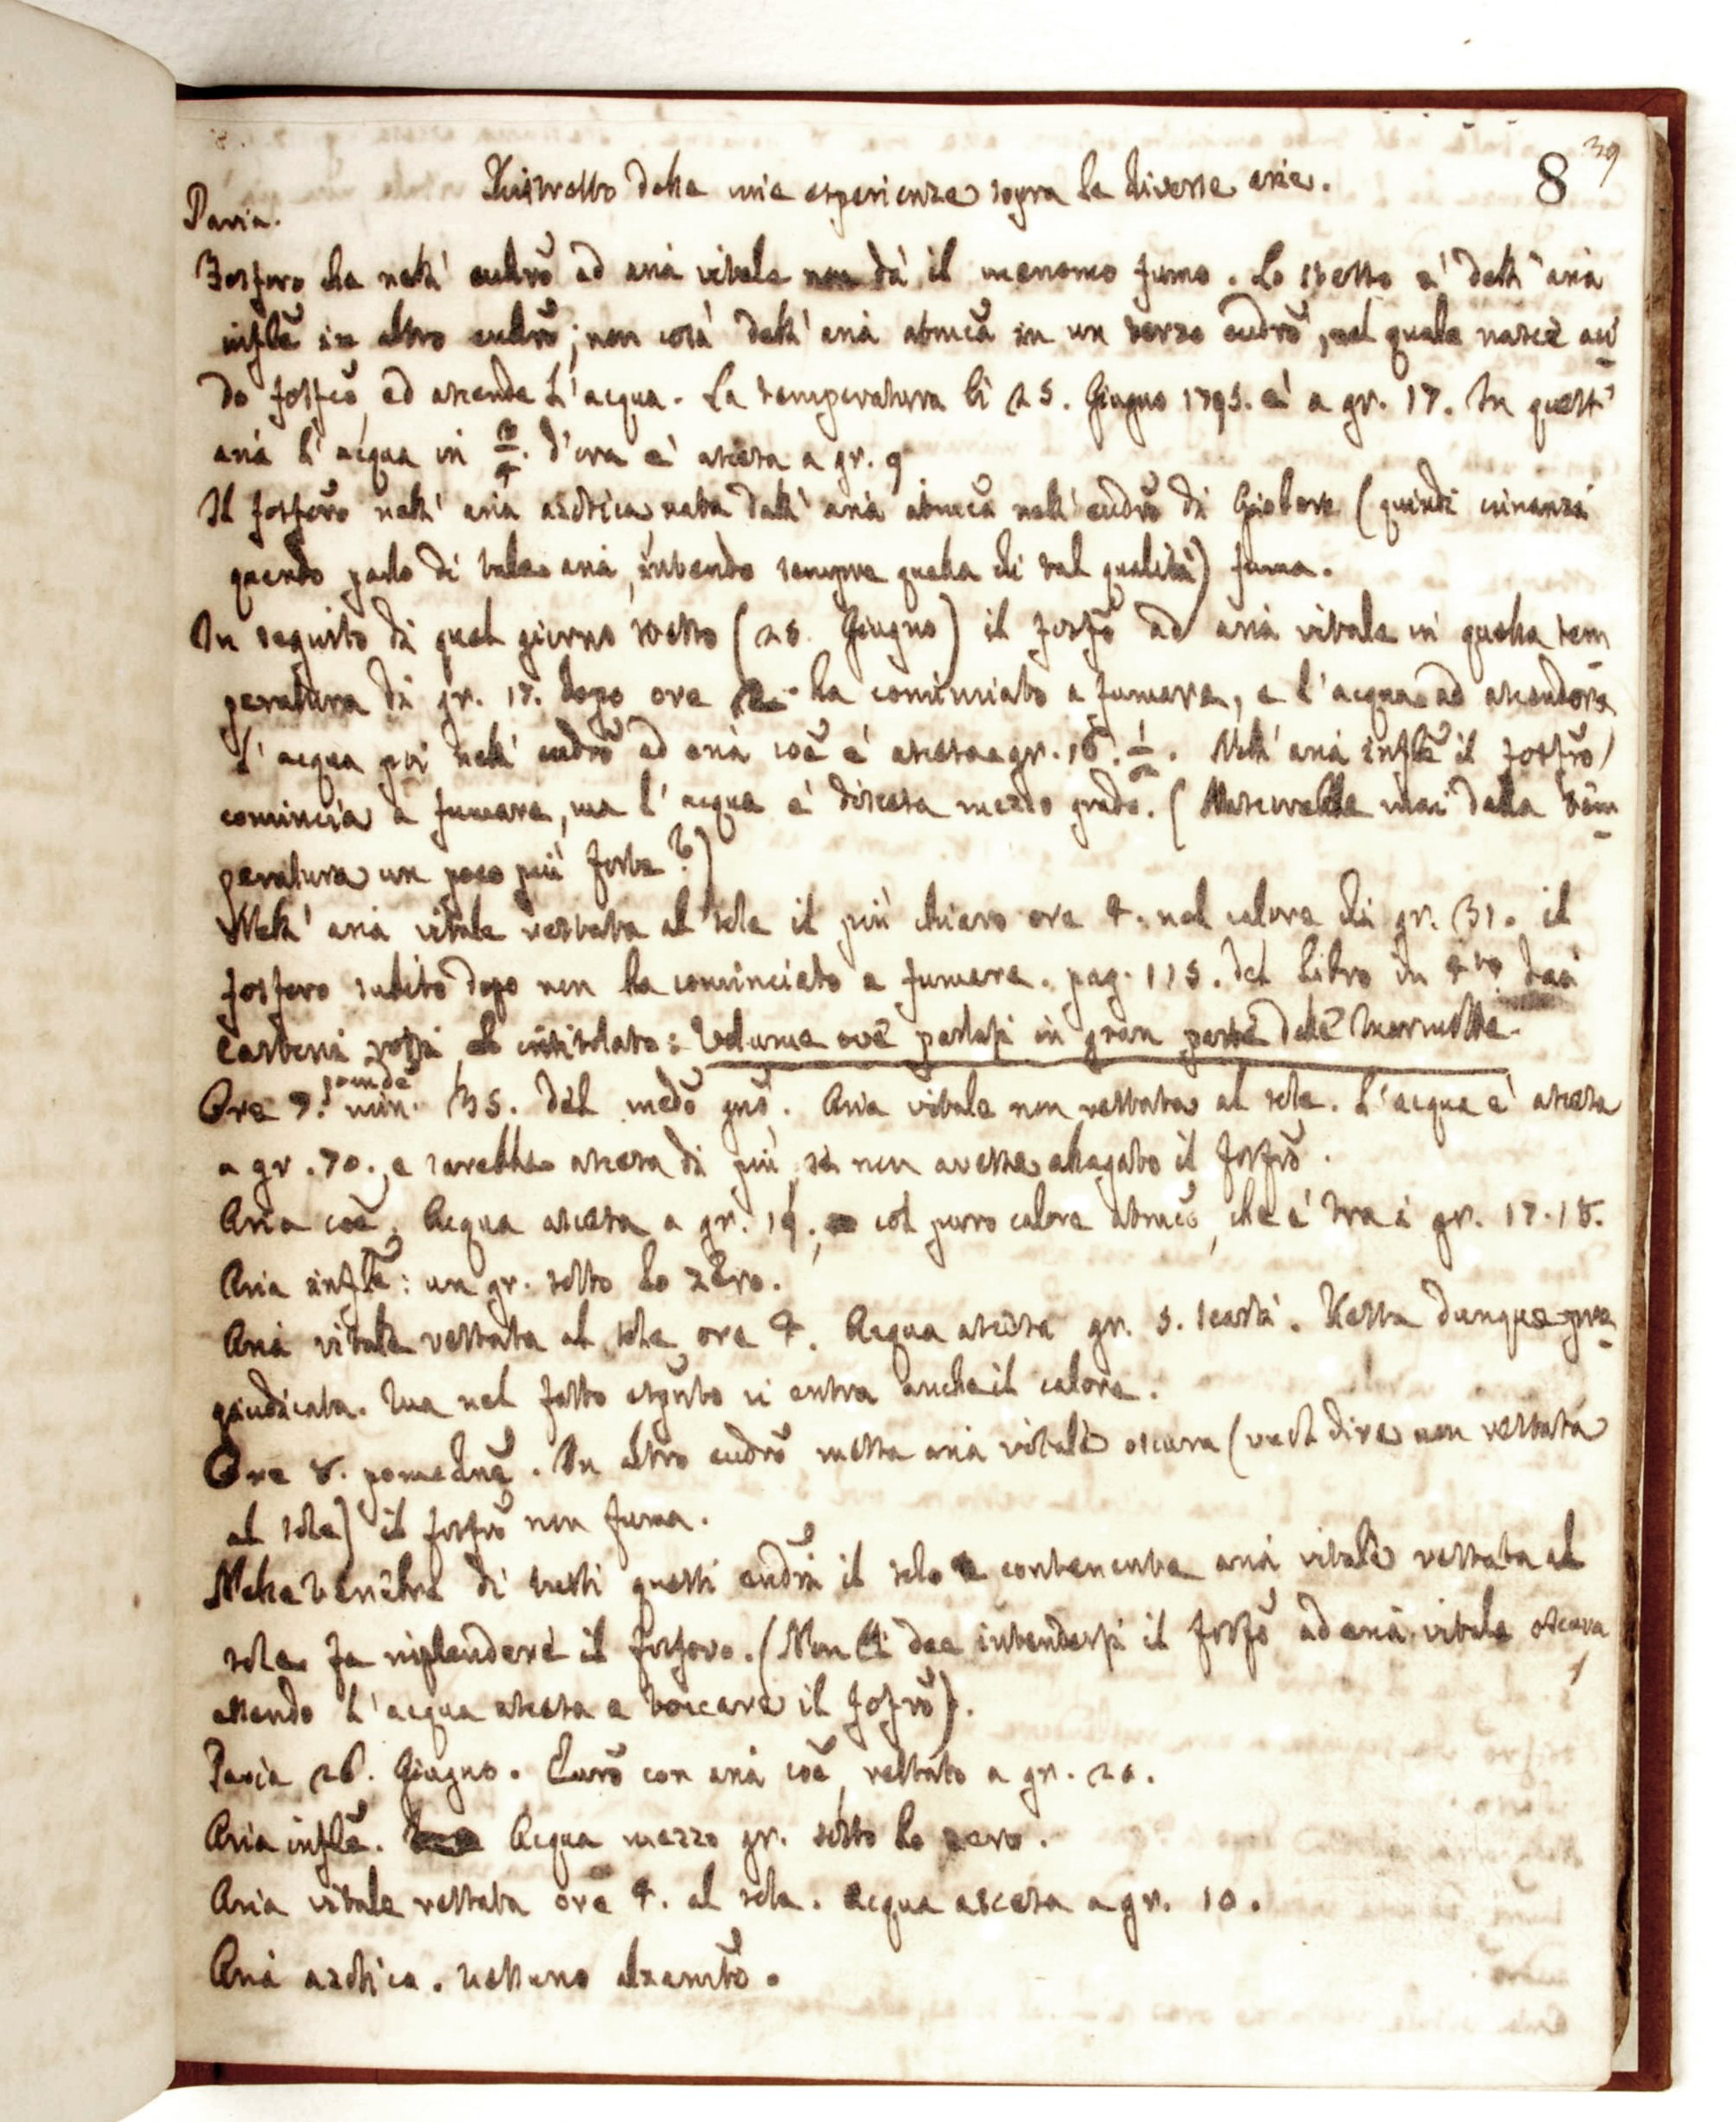 39
8
Ristretto delle mie esperienze sopra le diverse arie.
Pavia.
Fosforo che nell' eudrõ ad aria vitale non dà il menomo fumo. Lo stesso è dell' aria
inflẽ in altro eudrõ; non così dell' aria atmẽa in un terzo eudrõ, nel quale nasce aci
do fosfcõ, ed ascende l'acqua. La temperatura li 25. Giugno 1795. è a gr. 17. In quest'
aria l'acqua in 3/4. d'ora è ascesa a gr. 9
Il fosforõ nell' aria azotica nata dall' aria atmẽa nell' eudrõ di Giobert (quindi innanzi
quando parlo di tale aria, intendo sempre quella di tal qualità) fuma.
In seguito di quel giorno stesso (25. Giugno) il fosfõ ad aria vitale in quella tem
peratura di gr. 17. dopo ore 2. ha cominciato a fumare, e l'acqua ad ascendere
L'acqua poi nell' eudrõ ad aria coẽ è ascesa a gr. 18. 1/2. Nell' aria inflẽ il fosfrõ
comincia a fumare, ma l'acqua è discesa mezzo grado. (Nascerebbe mai dalla tem
peratura un poco più forte?)
Nell' aria vitale restata al sole il più chiaro ore 4. nel calore di gr. 31. il
fosforo subito dopo non ha cominciato a fumare. pag. 115. del Libro in 4to dei
Carboni fossi intitolato: Volume ove parlasi in gran parte delle Marmotte.
pomde
Ore 7. min. 35. del medõ gnõ. Aria vitale non restata al sole. L'acqua è ascesa
a gr. 70., e sarebbe ascesa di più, se non avesse allagato il fosfrõ.
Aria coẽ. Acqua ascesa a gr. 19., col puro calore atmcõ, che è tra i gr. 17.18.
Aria inflẽ: un gr. sotto lo zero.
Aria vitale restata al sole ore 4. Acqua ascesa gr. 5. scarsi. Resta dunque pre
giudicata. Ma nel fatto esputo ci entra anche il calore.
Ore 8. pomednẽ. In altro eudrõ messa aria vitale oscura (vuol dire non restata
al sole) il fosfrõ non fuma.
Nelle tenebre di tutti questi eudri il solo contenente aria vitale restata al
sole fa risplendere il fosforo. (Non si dee intendersi il fosfõ ad aria vitale oscura,
essendo l'acqua ascesa a toccare il fosfrõ).
Pavia 26. Giugno. Eudrõ con aria coẽ, restato a gr. 20.
Aria inflẽ. Acqua mezzo gr. sotto lo zero.
Aria vitale restata ore 4. al sole. Acqua ascesa a gr. 10.
Aria azotica. Nessuno alzamtõ.